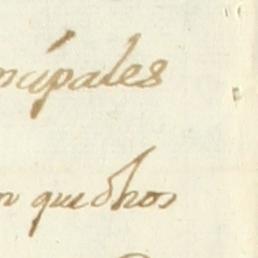 ncipales
n que dhos